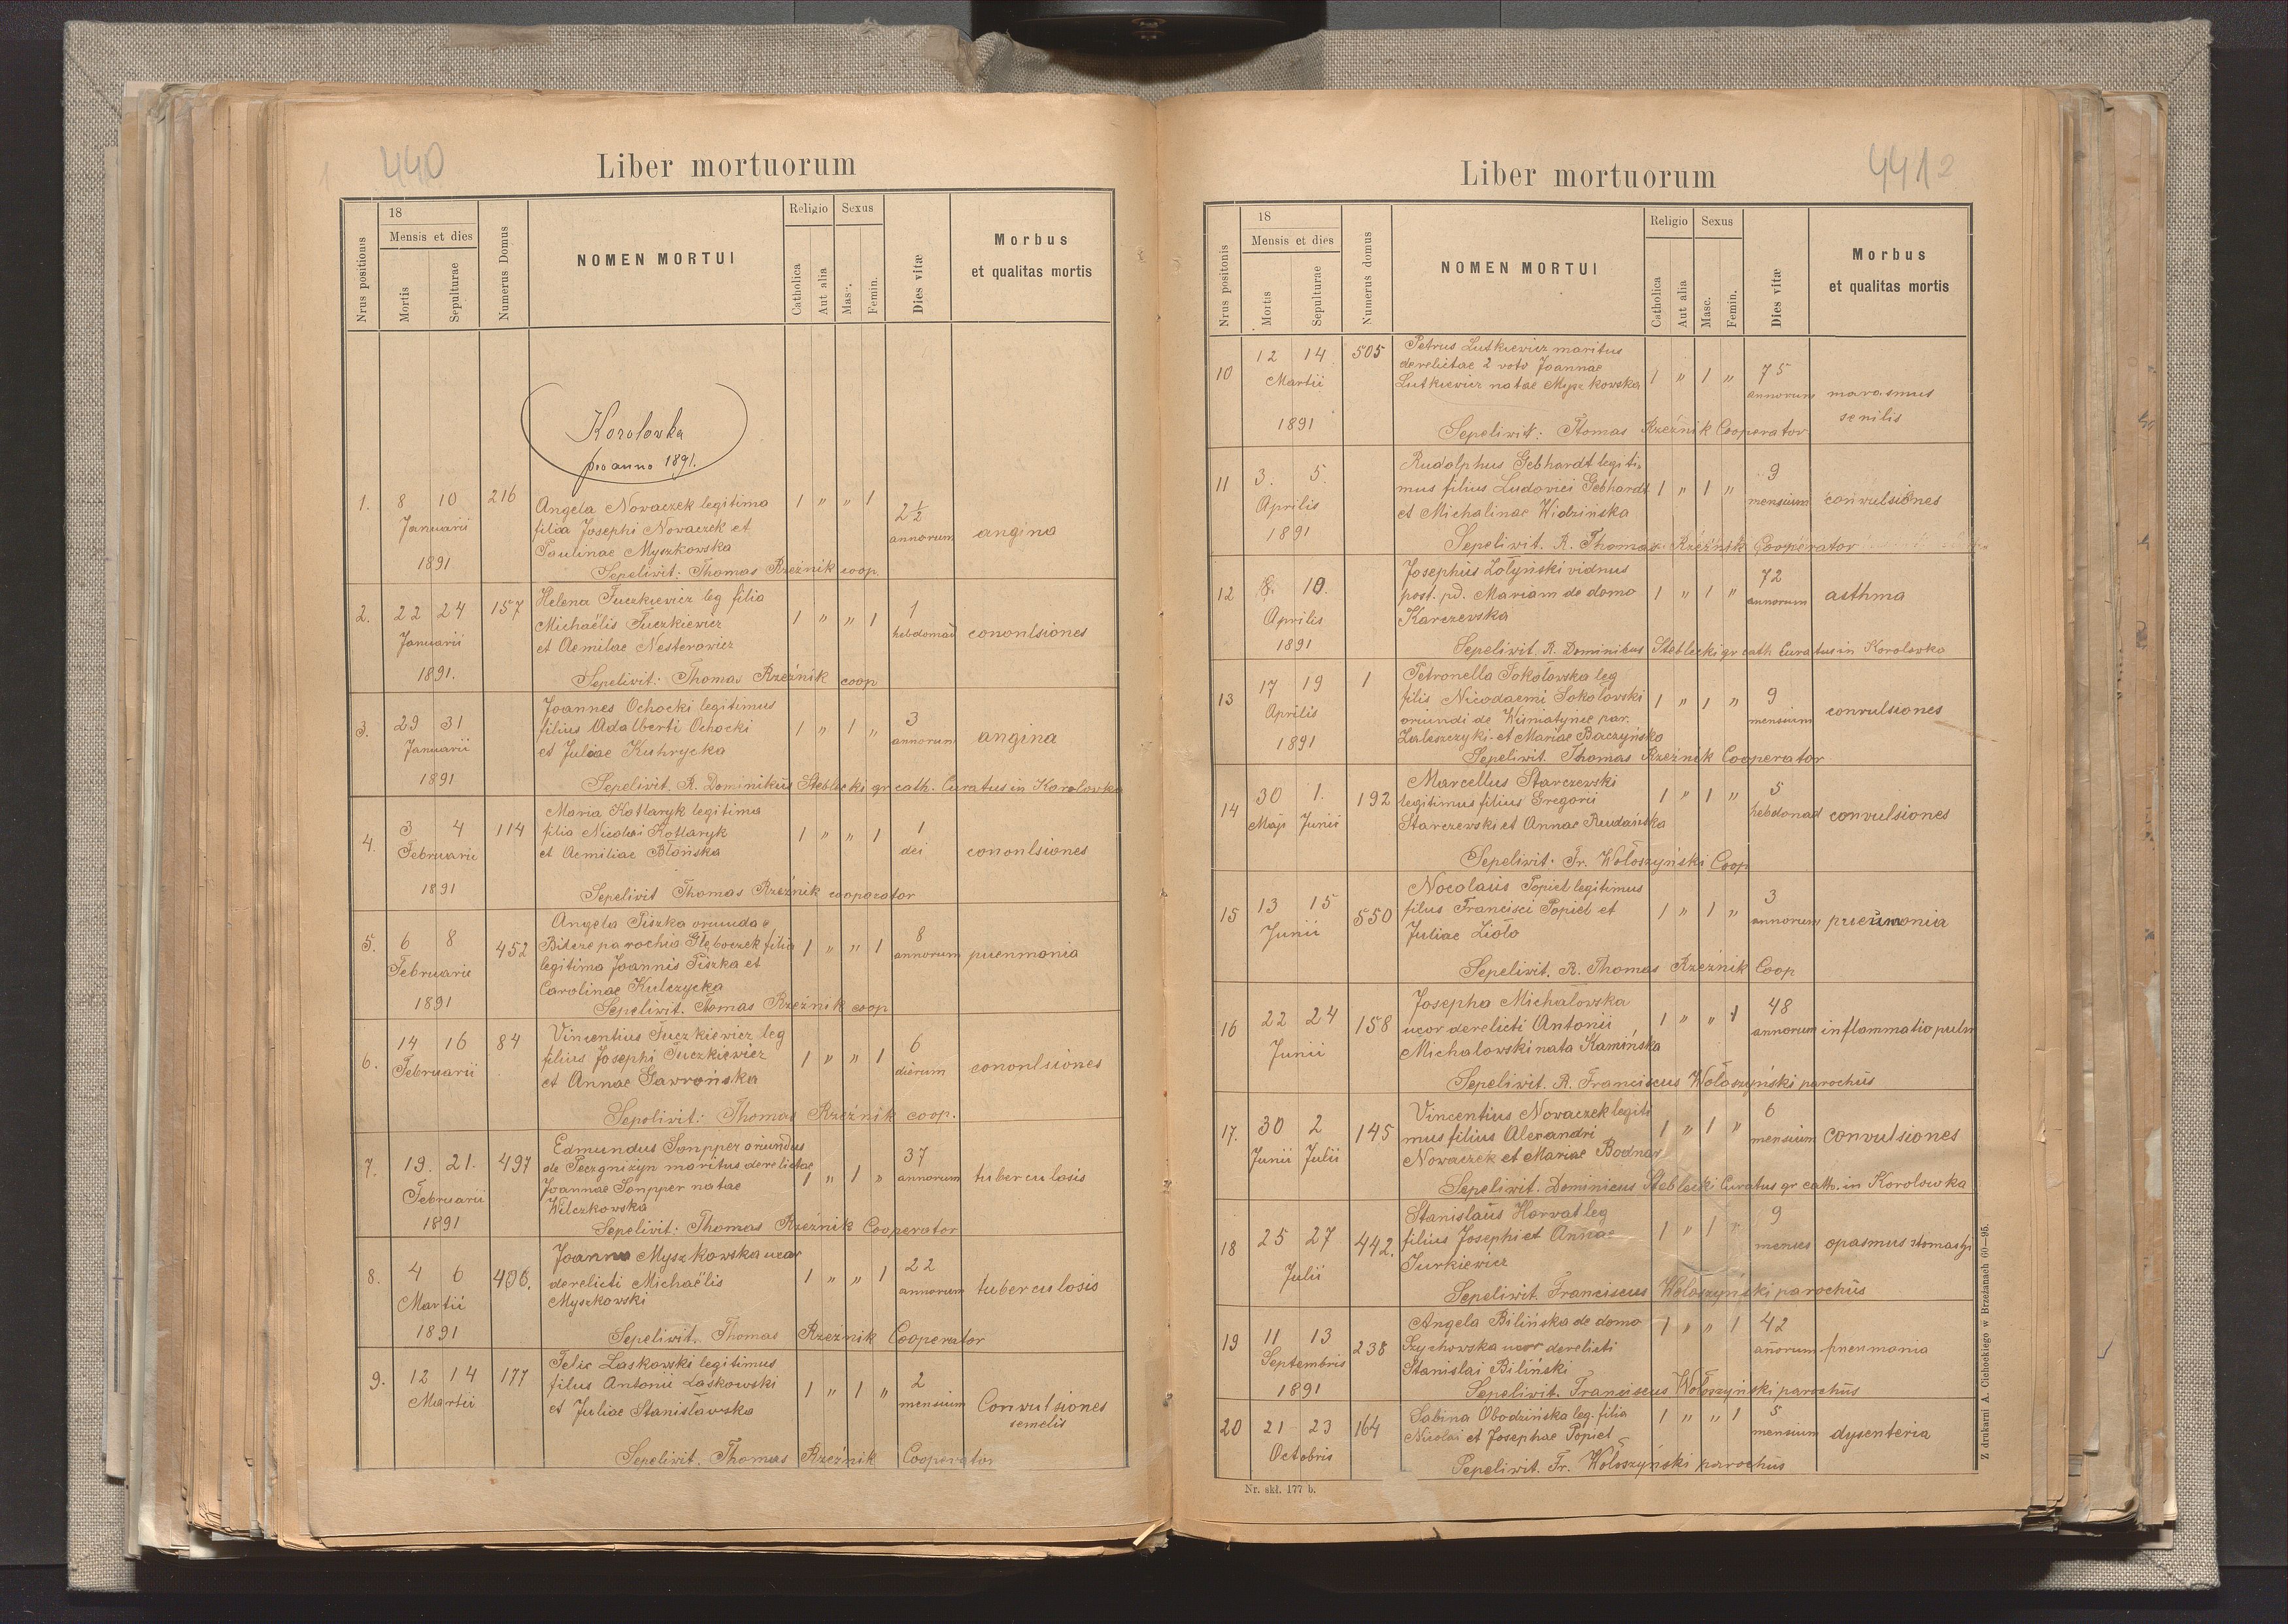 440
Liber mortuorum
Nrus positionis
18
Mensis et dies
Mortis
Sepulturae
Numerus Domus
NOMEN MORTUI
Religio
Catholica
Aut alia
Sexus
Masc.
Femin.
Dies vitæ
Morbus
et qualitas mortis
Korolowka
pro anno 1891.
1. 8 10 216 Angela Nowaczek legitima 1 " " 1 2½
Januarii filia Josephi Nowaczek et annorum angina
Paulinae Myszkowska
1891 Sepelivit: Thomas Rzeźnik coop.
2. 22 24 157 Helena Tuczkiewicz leg filia 1 " " 1 1
Januarii Michaëlis Tuczkiewicz hebdomad cononlsiones
et Aemilae Nesterowicz
1891. Sepelivit: Thomas Rzeźnik coop
3. 29 31 Joannes Ochocki legitimus 1 " 1 " 3
Januarii filius Adalberti Ochocki annorum angina
et Juliae Kuhrycka
1891 Sepelivit. R. Dominikus Steblecki gr cath. Curatus in Korolowka
4. 3 4 114 Maria Kotlaryk legitima 1 " " 1 1
Februarii filia Nicolai Kotlaryk dei cononlsiones
et Aemiliae Błońska
1891 Sepelivit Thomas Rzeźnik cooporator
5. 6 8 452 Angela Piszka oriunda e 1 " " 1 8
Februarii Bilcze parochia Głęboczek filia annorum pnenmonia
legitima Joannis Piszka et
Carolinae Kulczycka
1891 Sepelivit. Tomas Rzeźnik coop
6. 14 16 84 Vincentius Tuczkiewicz leg 1 " " 1 6
Februarii filius Josephi Tuczkiewicz dierum cononlsiones
et Annae Gawrońska
Sepelivit: Thomas Rzeźnik coop.
7. 19. 21. 497 Edmundus Sonpper oriundus 1 " 1 " 37
Februarii de maritus derelictae annorum tuberculosis
Joannae Sonpper natae
Wilczkowska
1891 Sepelivit: Thomas Rzeźnik Cooperator
8. 4 6 406. Joanna Myszkowska uxor 1 " " 1 22
Martii derelicti Michaëlis annorum tuberculosis
Myszkowski
1891 Sepelivit. Thomas Rzeźnik Cooperator
9. 12 14 177 Felix Laskowski legitimus 1 " 1 " 2
Martii filus Antonii Laskowski mensium Convulsiones
et Juliae Stanisławska semelis
Sepelivit. Thomas Rzeźnik Cooperator
441 2
Liber mortuorum
Nrus positonis
18
Mensis et dies
Mortis
Sepulturae
Numerus domus
NOMEN MORTUI
Religio
Catholica
Aut alia
Sexus
Masc.
Femin.
Dies vitæ
Morbus
et qualitas mortis
10 12 14 505 Petrus Lutkiewicz maritus 1 " 1 " 75
Martii derelictae 2 voto Joannae annorum marasmus
Lutkiewicz natae Myszkowska senilis
1891 Sepelivit: Tomas Rzeźnik Cooperator
11 3. 5. Rudolphus Gebhardt legiti- 1 " 1 " 9
Aprilis mus filius Ludovici Gebhardt mensium convulsiones
et Michalinae Widzińska
1891 Sepelivit. R. Thomas Rzeźnik Cooperator
12 8. 10. Josephus Zołyński viduus 1 " 1 " 72
Aprilis post. pd. Mariam de domo annorum asthma
Karczewska
1891 Sepelivit. R. Dominikus Steblecki gr cath Curatus in Korolowka
13 17 19 1 Petronella Sokołowska leg 1 " 1 " 9
Aprilis filia Nicodaemi Sokołowski mensium convulsiones
oriundi de Winiatynce par.
Zaleszczyki et Mariae Baczyńska
1891 Sepelivit. Thomas Rzeźnik Cooperator
14 30 1. 192 Marcellus Starczewski 1 " 1 " 5
Maji Junii legitimus filius Gregorii hebdonad convulsiones
Starczewski et Annae Rudańska
Sepelivit. Fr. Wołoszyński Coop
15 13 15 550 Nocolaüs Popiel legitimus 1 " 1 " 3
Junii filus Francisci Popiel et annorum pneumonia
Juliae Lioło
Sepelivit. R. Thomas Rzeźnik Coop
16 22 24 158 Josepha Michałowska 1 " " 1 48
Junii uxor derelicti Antonii annorum inflammatio pulm
Michalowski nata Kamińska
Sepelivit. R. Franciscus Wołoszyński parochus
17. 30 2 145 Vincentius Nowaczek legiti 1 " 1 " 6
Junii Julii mus filius Alexandri mensium convulsiones
Nowaczek et Mariae Bodnar
Sepelivit. Dominicus Steblecki Curatus gr cath. in Korolowka
18 25 27 442. Stanislaüs Horwat leg 1 " 1 " 9
Julii filius Josephi et Annae menses
Turkiewicz
Sepelivit Franciscus Wołoszyński parochüs
19 11 13 238 Angela Bilińska de domo 1 " " 1 42
Septembris Szychowska uxor derelicti anorum pneumonia
Stanislai Biliński
1891 Sepelivit. Franciscus Wołoszyński parochüs
20 21 23 164 Sabina Obodzińska leg. filia 1 " " 1 5
Octobris Nicolai et Josephae Popiel mensium dysenteria
Sepelivit. Fr. Wołoszyński parochüs
Nr. skł. 177 b.
Z drukarni A. Cichockiego w Brzeżanach 60—95.